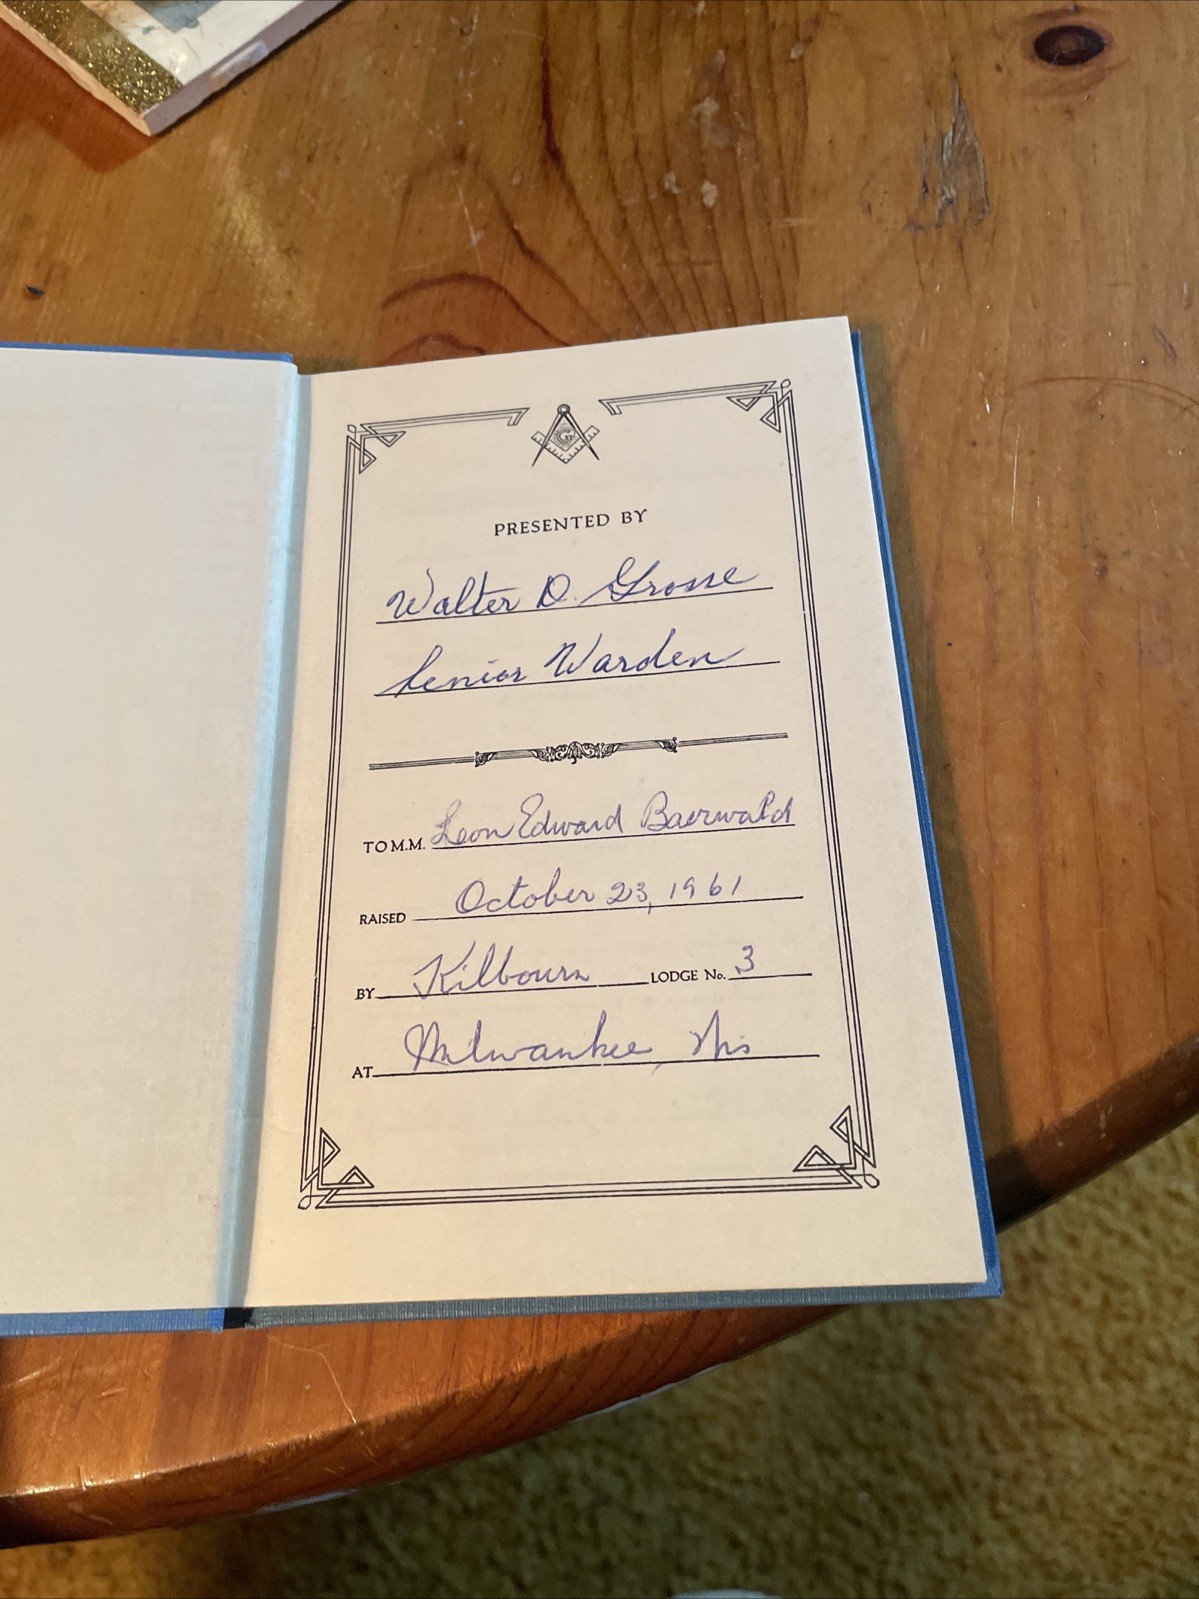 G
PRESENTED BY
Walter D. Grosse
Senior Warden
TO M.M. Leon Edward Baerwald
RAISED October 23, 1961
BY Kilbourn LODGE No. 3
AT Milwaukee, Wis